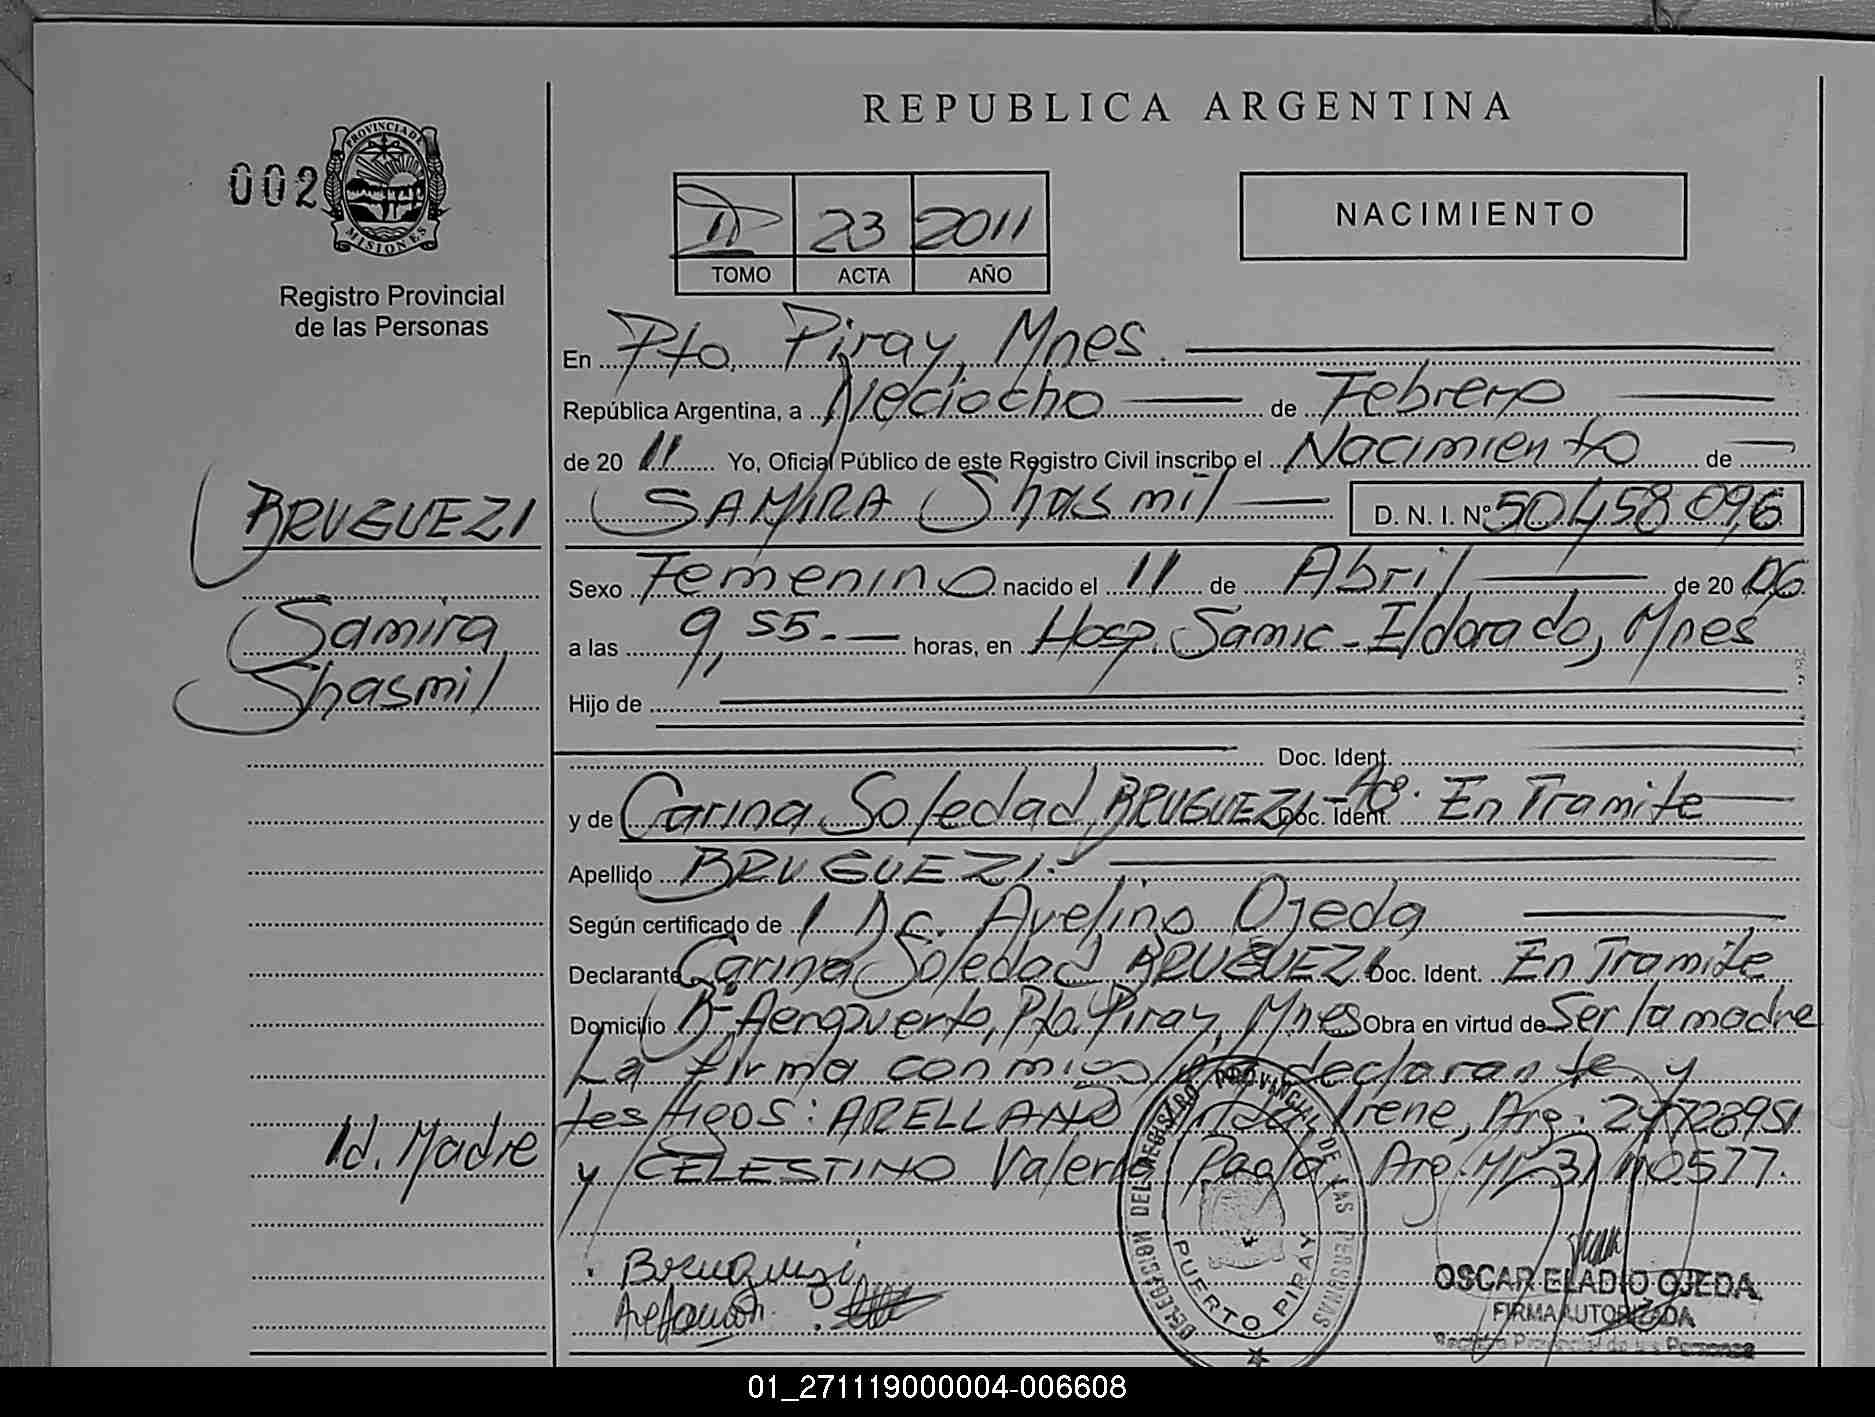 REPUBLICA ARGENTINA
002
PROVINCIA DE
MISIONES
Registro Provincial
de las Personas
II 23 2011
TOMO ACTA AÑO
NACIMIENTO
En Pto. Piray, Mnes.
República Argentina, a Dieciocho de Febrero
de 20 11 Yo, Oficial Público de este Registro Civil inscribo el Nacimiento de
SAMIRA Shasmil D. N. I. Nº 50458096
BRUGUEZI
Samira
Shasmil
Sexo Femenino nacido el 11 de Abril de 20 06
a las 9,55.- horas, en Hosp. Samic - Eldorado, Mnes
Hijo de
Doc. Ident.
y de Carina Soledad BRUGUEZI - Ao. Doc. Ident. En Tramite
Apellido BRUGUEZI.-
Según certificado de 1 Dr. Avelino Ojeda
Declarante Carina Soledad BRUGUEZI Doc. Ident. En Tramite
Domicilio Bº Aeropuerto, Pto. Piray, Mnes Obra en virtud de Ser la madre
La firma conmigo la declarante y
testigos: ARELLANO Irene, Arg. 24728951
y CELESTINO Valeria Paola, Arg.
Id. Madre
DELEGACION DEL REGISTRO PROVINCIAL DE LAS PERSONAS
PUERTO PIRAY
Bruguezi
OSCAR ELADIO OJEDA
FIRMA AUTORIZADA
Registro Provincial de las Personas
01_271119000004-006608